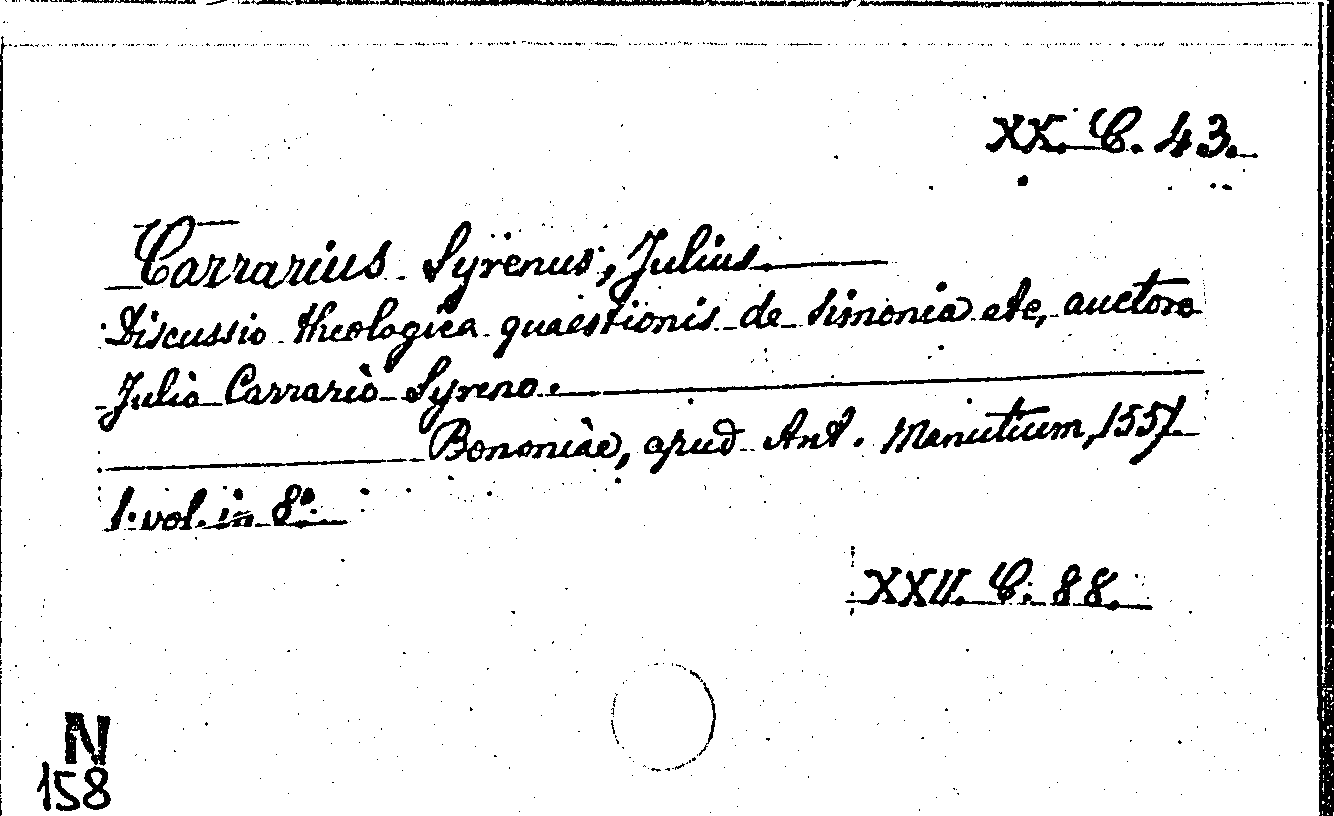 XX. C. 43.
Carrarius Syrenus, Julius
Discussio theologica quaestionis de simonia etc, auctore
Julio Carrario Syreno.
Bononiae, apud Ant. Manutium, 1557
1. vol. in 8°.
XXII. C. 88.
N
158